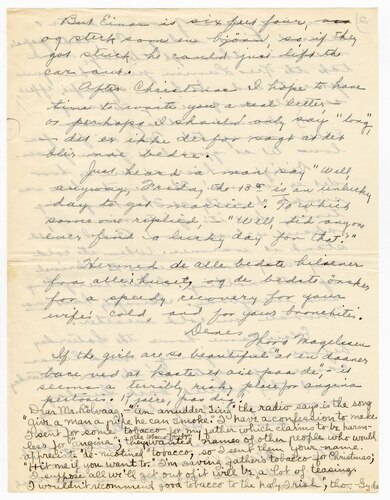 But Einar is six feet four, 
og sterk som en bjørn, so if they
got stuck he could just lift the
car out.
After Christmas I hope to have
time to write you a real letter -
or perhaps I should only say "long",
- det er ikke derfor sagt at det
blir noe bedre.
Just heard a man say "Well,
anyway, Friday the 13th is an unlucky
day to get married". To which
someone replied, "Well, did anyone
ever find a lucky day for that?"
Hermed de alle bedste helsener
fra alle i huset, og de bedste ønsker
for a speedy recovery for your
wife's cold and for your bronchitis.
Deres
Thora Magelssen
If the girls are so beautiful "at en danser
bare ved at kaste et øie paa de," - it
seems a terribly risky place for angina
pectoris.
Dear Mr. Rolvaag: "Den anudder ting" the radio says is the song
"Give a man a pipe he can smoke." I have a confession to make.
I sent for some tobacco for my father which claims to be harm-
less for "angina"; they wanted names of other people who would
appreciate de-nicotined tobacco, so I sent them your name.
"Hit me if you want to." I'm saving father's tobacco til Christmas;
I suppose we'll get out of it will be a lot of teasing.
I wouldn't recommend good tobacco to the holy Irish, tho.